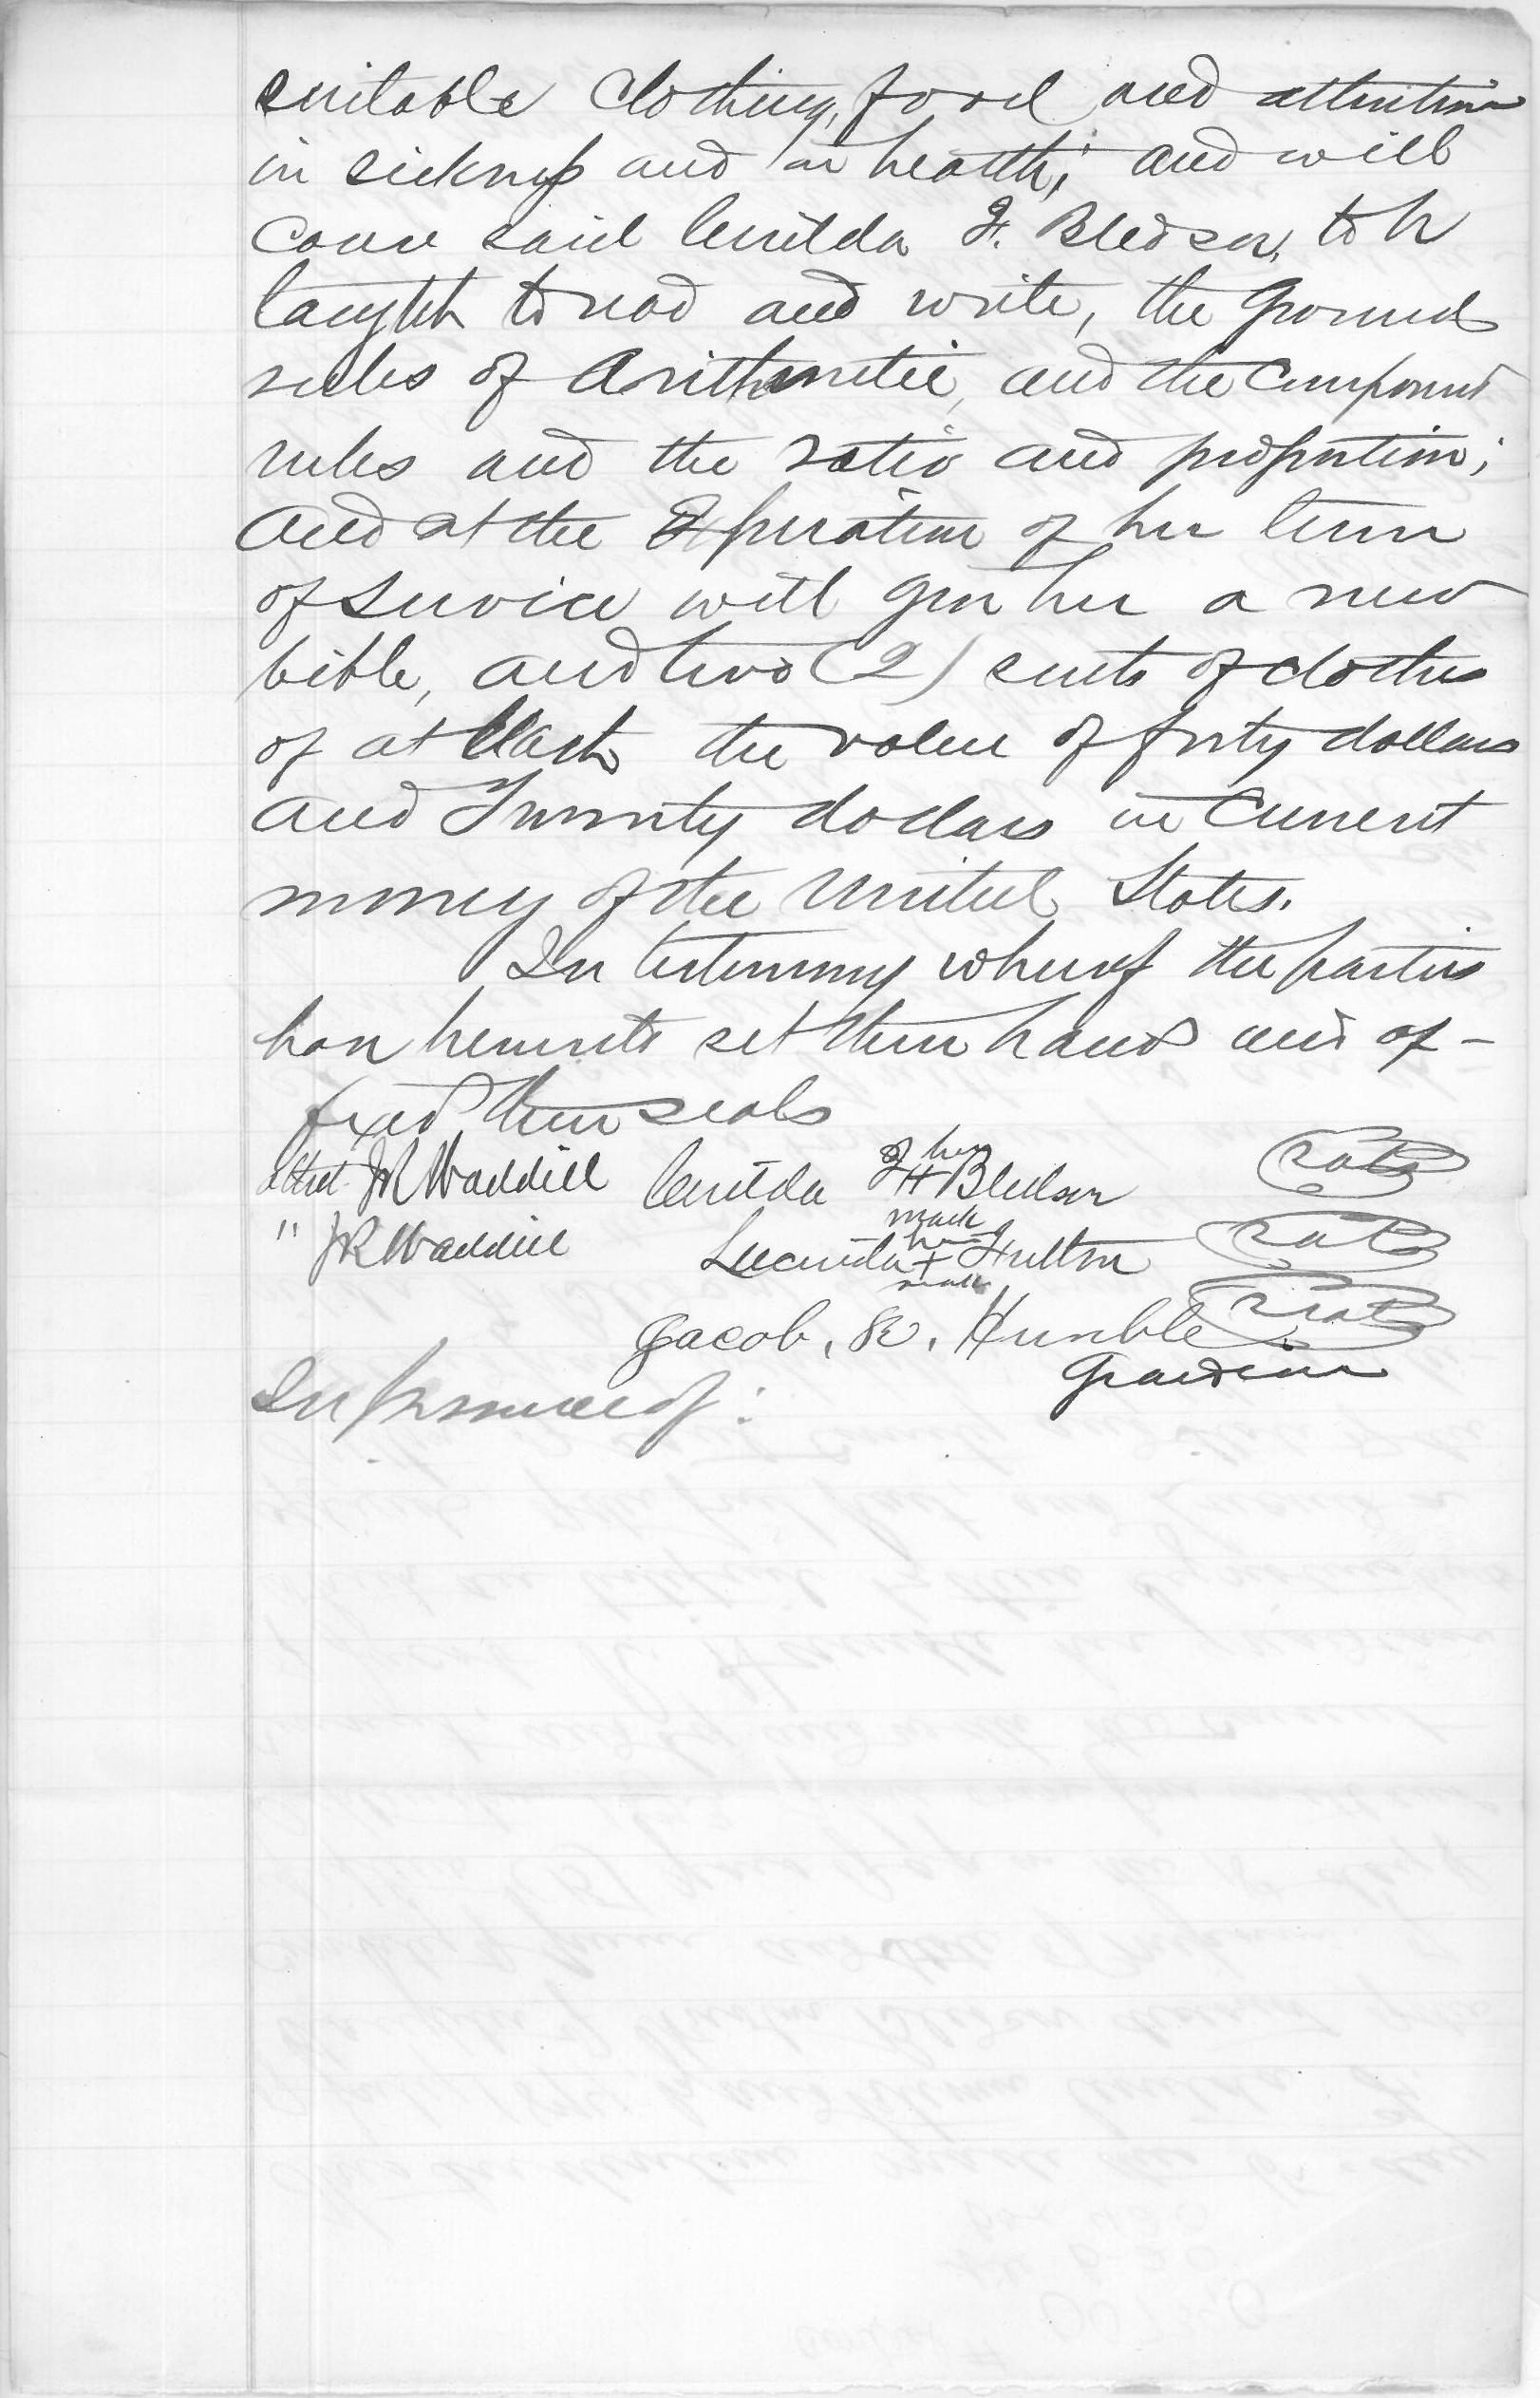 suitable Clothing, food and attention
in sickness and in health; and will
cause said Cerilda F. Bledsoe, to be
taught to read and write, the Ground
rules of Arithmetic, and the Compound
rules and the ratio and proportion;
and at the Expiration of her term
of service will give her a new
bible, and two (2) suits of clothes
of at least the value of forty dollars
and Twenty dollars in Current
money of the United States.
In testimony whereof the parties
have hereunto set their hands and af-
fixed their seals
Attest JR Waddill Cerilda F her + Bledsoe mark (seal)
" JR Waddill Lucinda her + Fulton mark (seal)
Jacob, R, Humble (seal)
Guardian
In presence of :